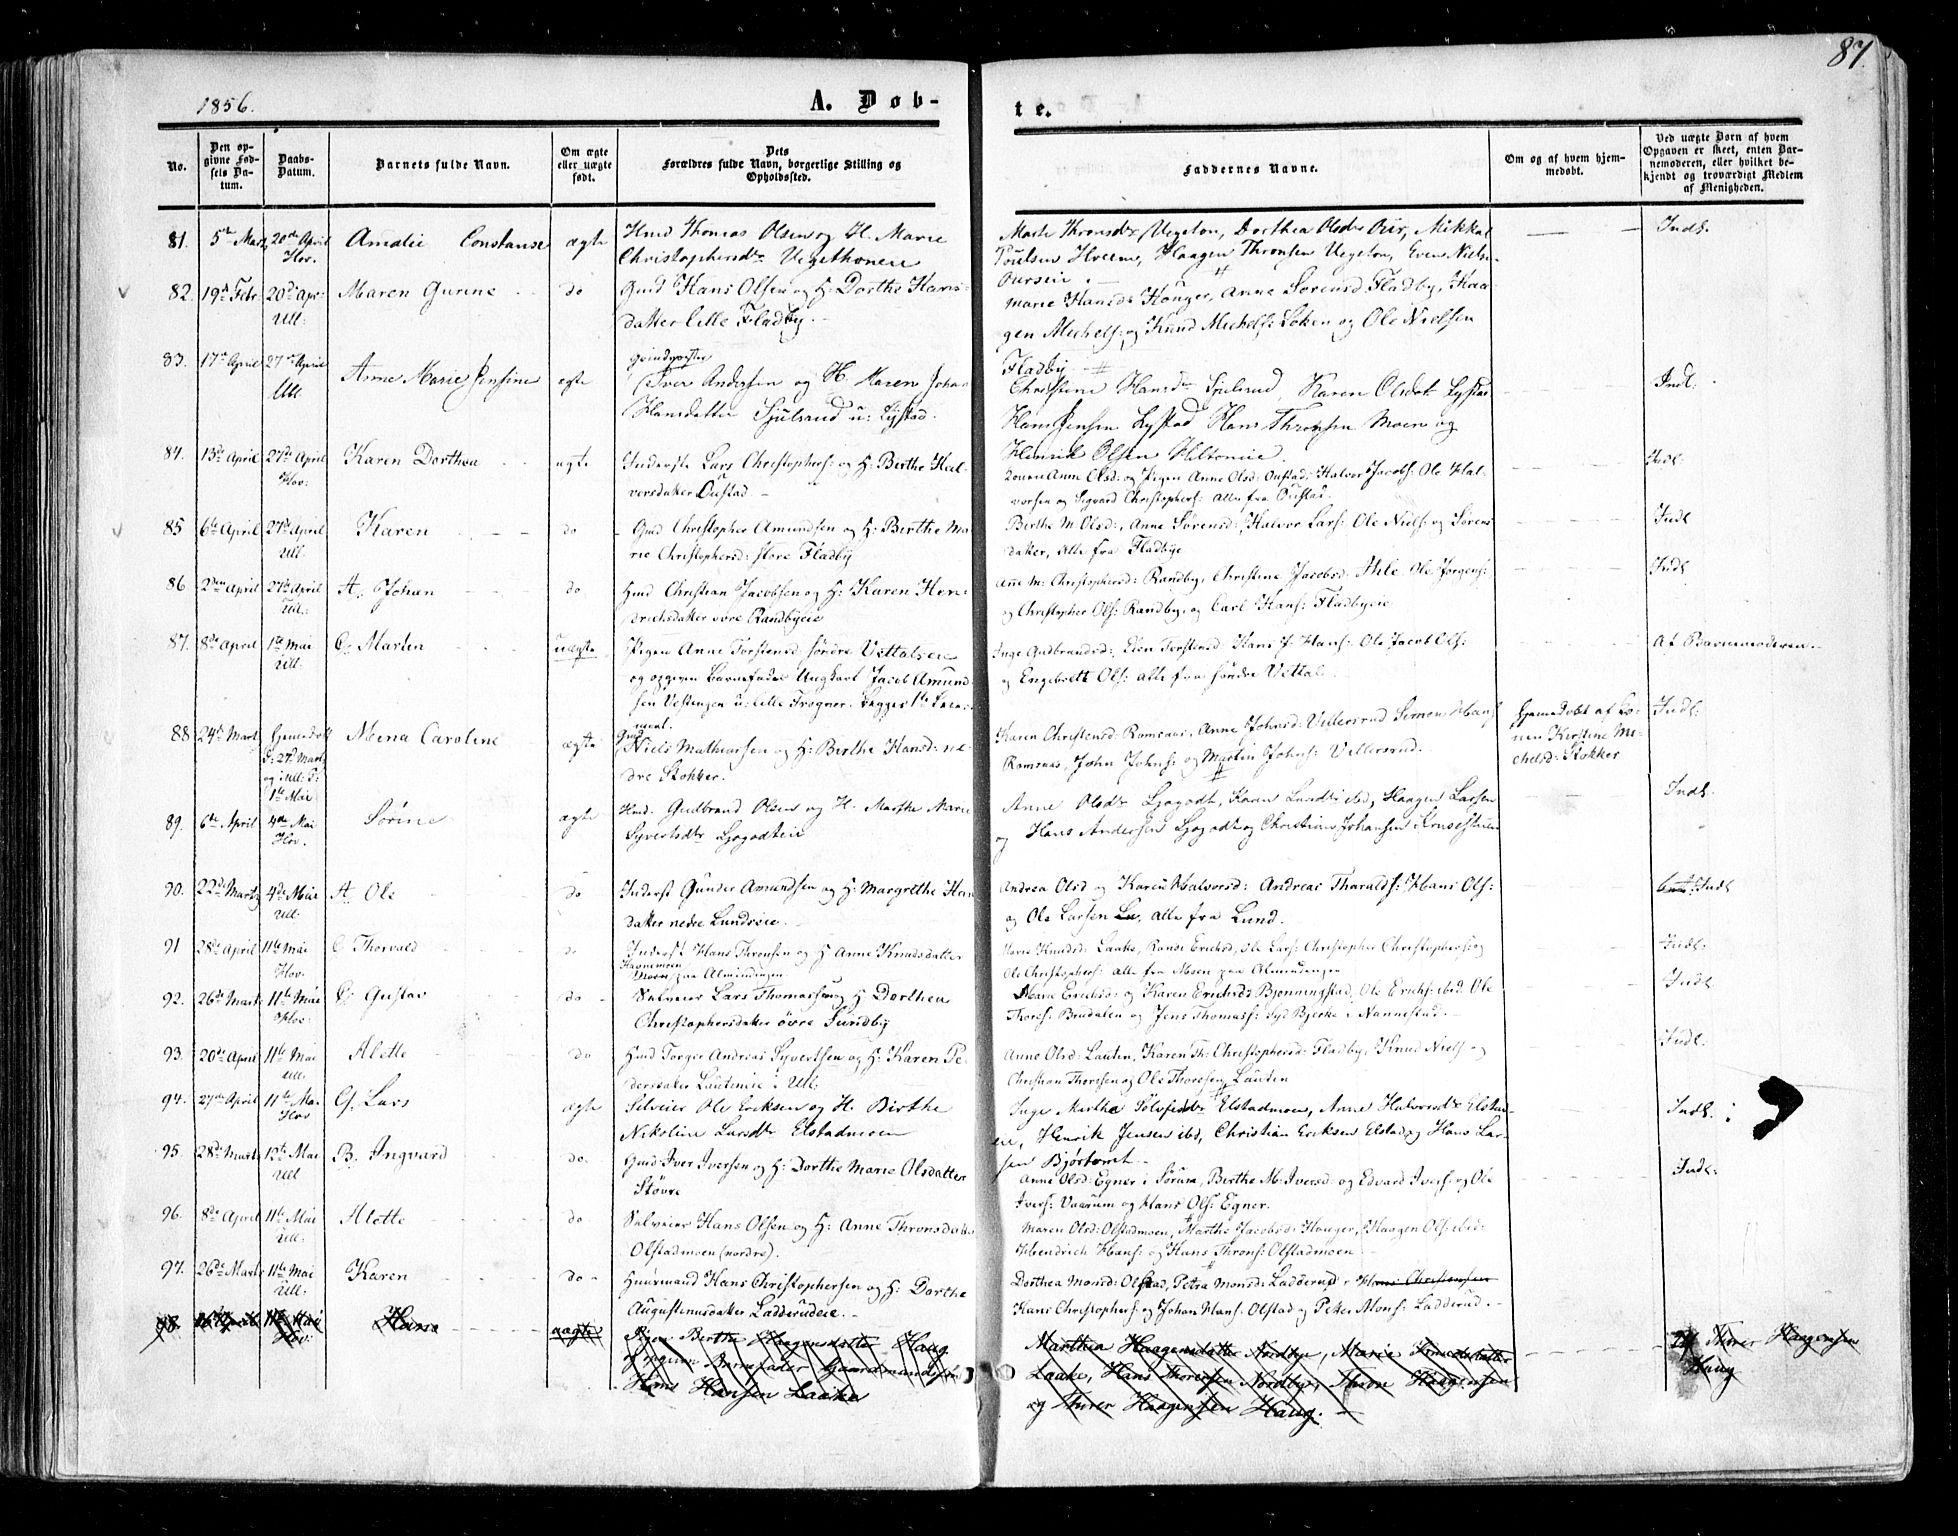 87.
1856.
A. Døb-
te.
No.
Den op-
givne Fød-
sels Da-
tum.
Daabs-
Datum.
Barnets fulde Navn.
Om ægte
eller uægte
født.
Dets
Forældres fulde Navn, borgerlige Stilling og
Opholdssted.
Faddernes Navne.
Om og af hvem hjem-
medøbt.
Ved uægte Børn af hvem
Opgaven er skeet, enten Bar-
nemoderen, eller hvilket be-
kjendt og troværdigt Medlem
af Menigheden.
81. 5te 20de April Amalie Constanse ægte Hmd Thomas Olsen og H. Marie Marte Dorthea Olsdr Mikkel Indl.
Hov. Christophersdr Hveem, Haagen Thronsen Even Niels-
82. 19de Febr. 20de Apr: Maren Gurine do Gmd Hans Olsen og H: Dorthe Hans-
Ull: datter Lille Fladby. Marie Hansd: Anne Sørensd: Fladby, Haa-
gen Michels: og Knud Michels: Løken og Ole Nielsen
Fladby
83. 17de April 27de April Anne Marie Jensine ægte Iver Andersen og H. Maren Johan Christine Hansdr Sjulsrud, Karen Olsdr Lystad Indl.
Ull Hansdatter Sjulsrud u: Lystad. Hans Jensen Lystad Hans Thronsen Moen og
Henrik Olsen
84. 13de April 27de April Karen Dorthea ægte Inderste Lars Christophers: og H: Berthe Hal- Konen Anne Olsd: og Pigen Anne Olsd: Oustad: Halvor Jacobs: Ole Hal- Indl:
Hov: vorsdatter Oustad vorsen og Sigvard Christophers: alle fra Oustad.
85 6te April 27de April Karen do Gmd Christopher Amundsen og H: Berthe Ma- Berthe M: Olsd:, Anne Sørensd:, Halvor Lars: Ole Niels: og Søren Indl
Ull: rie Christophersd: store Fladby alle fra Fladbye
86 2den April 27de April A. Johan do Hmd Christian Jacobsen og H: Karen Hen- Ane M: Christophersd: Randby, Christine Jacobsd: Ole Jørgens: Indl
Ul: driksdatter øvre Randbyeie og Christopher Ols: Randby, og Carl Hans: Fladbyeie
87. 8de April 1ste Mai C. Martin uægte Pigen Anne Torstensd: søndre Vettalseie Inge Gudbrandsd: Torstensd: Hans P. Hans: Ole Jacob Ols: Af Barnemoderen.
Ull. og opgiven Barnefader Ungkarl Jacob Amund- og Engebrett Ols: alle fra søndre Vettal.
sen u: Lille Frogner. Begges 1ste
88 24de Mart Hjemedøbt Mina Caroline ægte Gmd Niels Mathiassen og H: Berthe Hansd: ne- Karen Christensd: Ramsaas, Anne Johnsd: Vellersrud Simon Hans: Hjemedøbt af Ko- Indl:
27 Marts dre Stokker. Ramsaas, John Johns: og Martin Johns: Vellersrud. nen Kirstine Mi-
og i Ull: chelsd: Stokker
1ste Mai
89. 6te April 4de Mai Sørine ægte Hmd. Gudbrand Olsen og H. Marthe Marie Anne Olsdr Ljøgodt, Karen ibd, Haagen Larsen Indl.
Hov. Syvertsdr Ljøgodteie og Hans Andersen Ljøgodt og Christian Johansen
90. 22de Marts 4de Mai A. Ole do Inderst Gunder Amundsen og H: Margrethe Han Andrea Olsd og Karen Halvorsd: Andreas Tharalds: Hans Ols: Indl
Ull. datter nedre Lundseie og Ole Larsen alle fra Lund.
91 28de April 11te Mai C Thorvald do Inderst Hans Thronsen og H Anne Knudsdatter Marie Knudsd: Laake, Randi Ericksd, Ole Lars: Christopher Christophers: og Indl:
Hov. Moen paa Almindingen Ole Christophers: alle fra Moen paa Almindingen
92. 26de Marts 11te Mai C. Gustav do Selveier Lars Thomassen og H Dorthea Maren Ericksd: og Karen Ericksd: Bjønningstad, Ole Ericks: ibid: Ole Indl
Hov: Christophersdatter øvre Sundby Thores: Brudalen og Jens Thomass: Syd Bjerke i Nannestad.
93. 20de April 11te Mai Alette do Hmd Torger Andreas Syvertsen og H: Karen Pe- Anne Olsd: Lauten, Karen Th: Christophersd: Fladby, Knud Niels og Indl.
Ull. dersdatter Lauteneie i Ull: Christian Thoresen og Ole Thoresen Lauten
94. 27de April 11te Mai G. Lars ægte Selveier Ole Eriksen og H. Birthe Inge Marthe Elstadmoen, Anne Halvorsdr Indl.
Hov Nikoline Larsdr Elstadmoen Henrik Jensen ibd, Christian Eriksen Elstad og Hans Lar-
sen
95. 28de Marts 12te Mai B. Ingvard do. Gmd Iver Iversen og H: Dorthe Marie Olsdatter Anne Olsd: Egner i Sørum, Berthe M: Iversd: og Edvard Ivers: og Ole Indl:
Ull Støvre Ivers: og Hans Ols: Egner.
96. 8de April 11te Mai Alette do. Selveier Hans Olsen og H: Anne Thronsdatter Maren Olsd: Olstadmoen, Marthe Jacobsd: Hauger, Haagen Ols: ibd:
Ull: Olstadmoen (nordre). Hendrich Hans: og Hans Throns: Olstadmoen
97. 26de Marts 11te Mai Karen do Huusmand Hans Christophersen og H: Dorthe Dorthea Monsd: Olstad, Petra Monsd: Ladderud, Hans Christensen
Ull: Augustinusdatter Ladderudeie. Hans Christophers: og Johan Hans: Olstad og Peter Mons: Ladderud.
98. 11te Mai Hans uægte Pigen Berthe Haagensdatter Haug Marthea Haagensdatter Nordby, Marie Thurer Haagensen
Hov: opgiven Barnefader Gaardmandssøn Laake, Hans Thoresen Nordby, Thron Haagensen Haug
Hans Hansen Laake og Thurer Haagensen Haug.